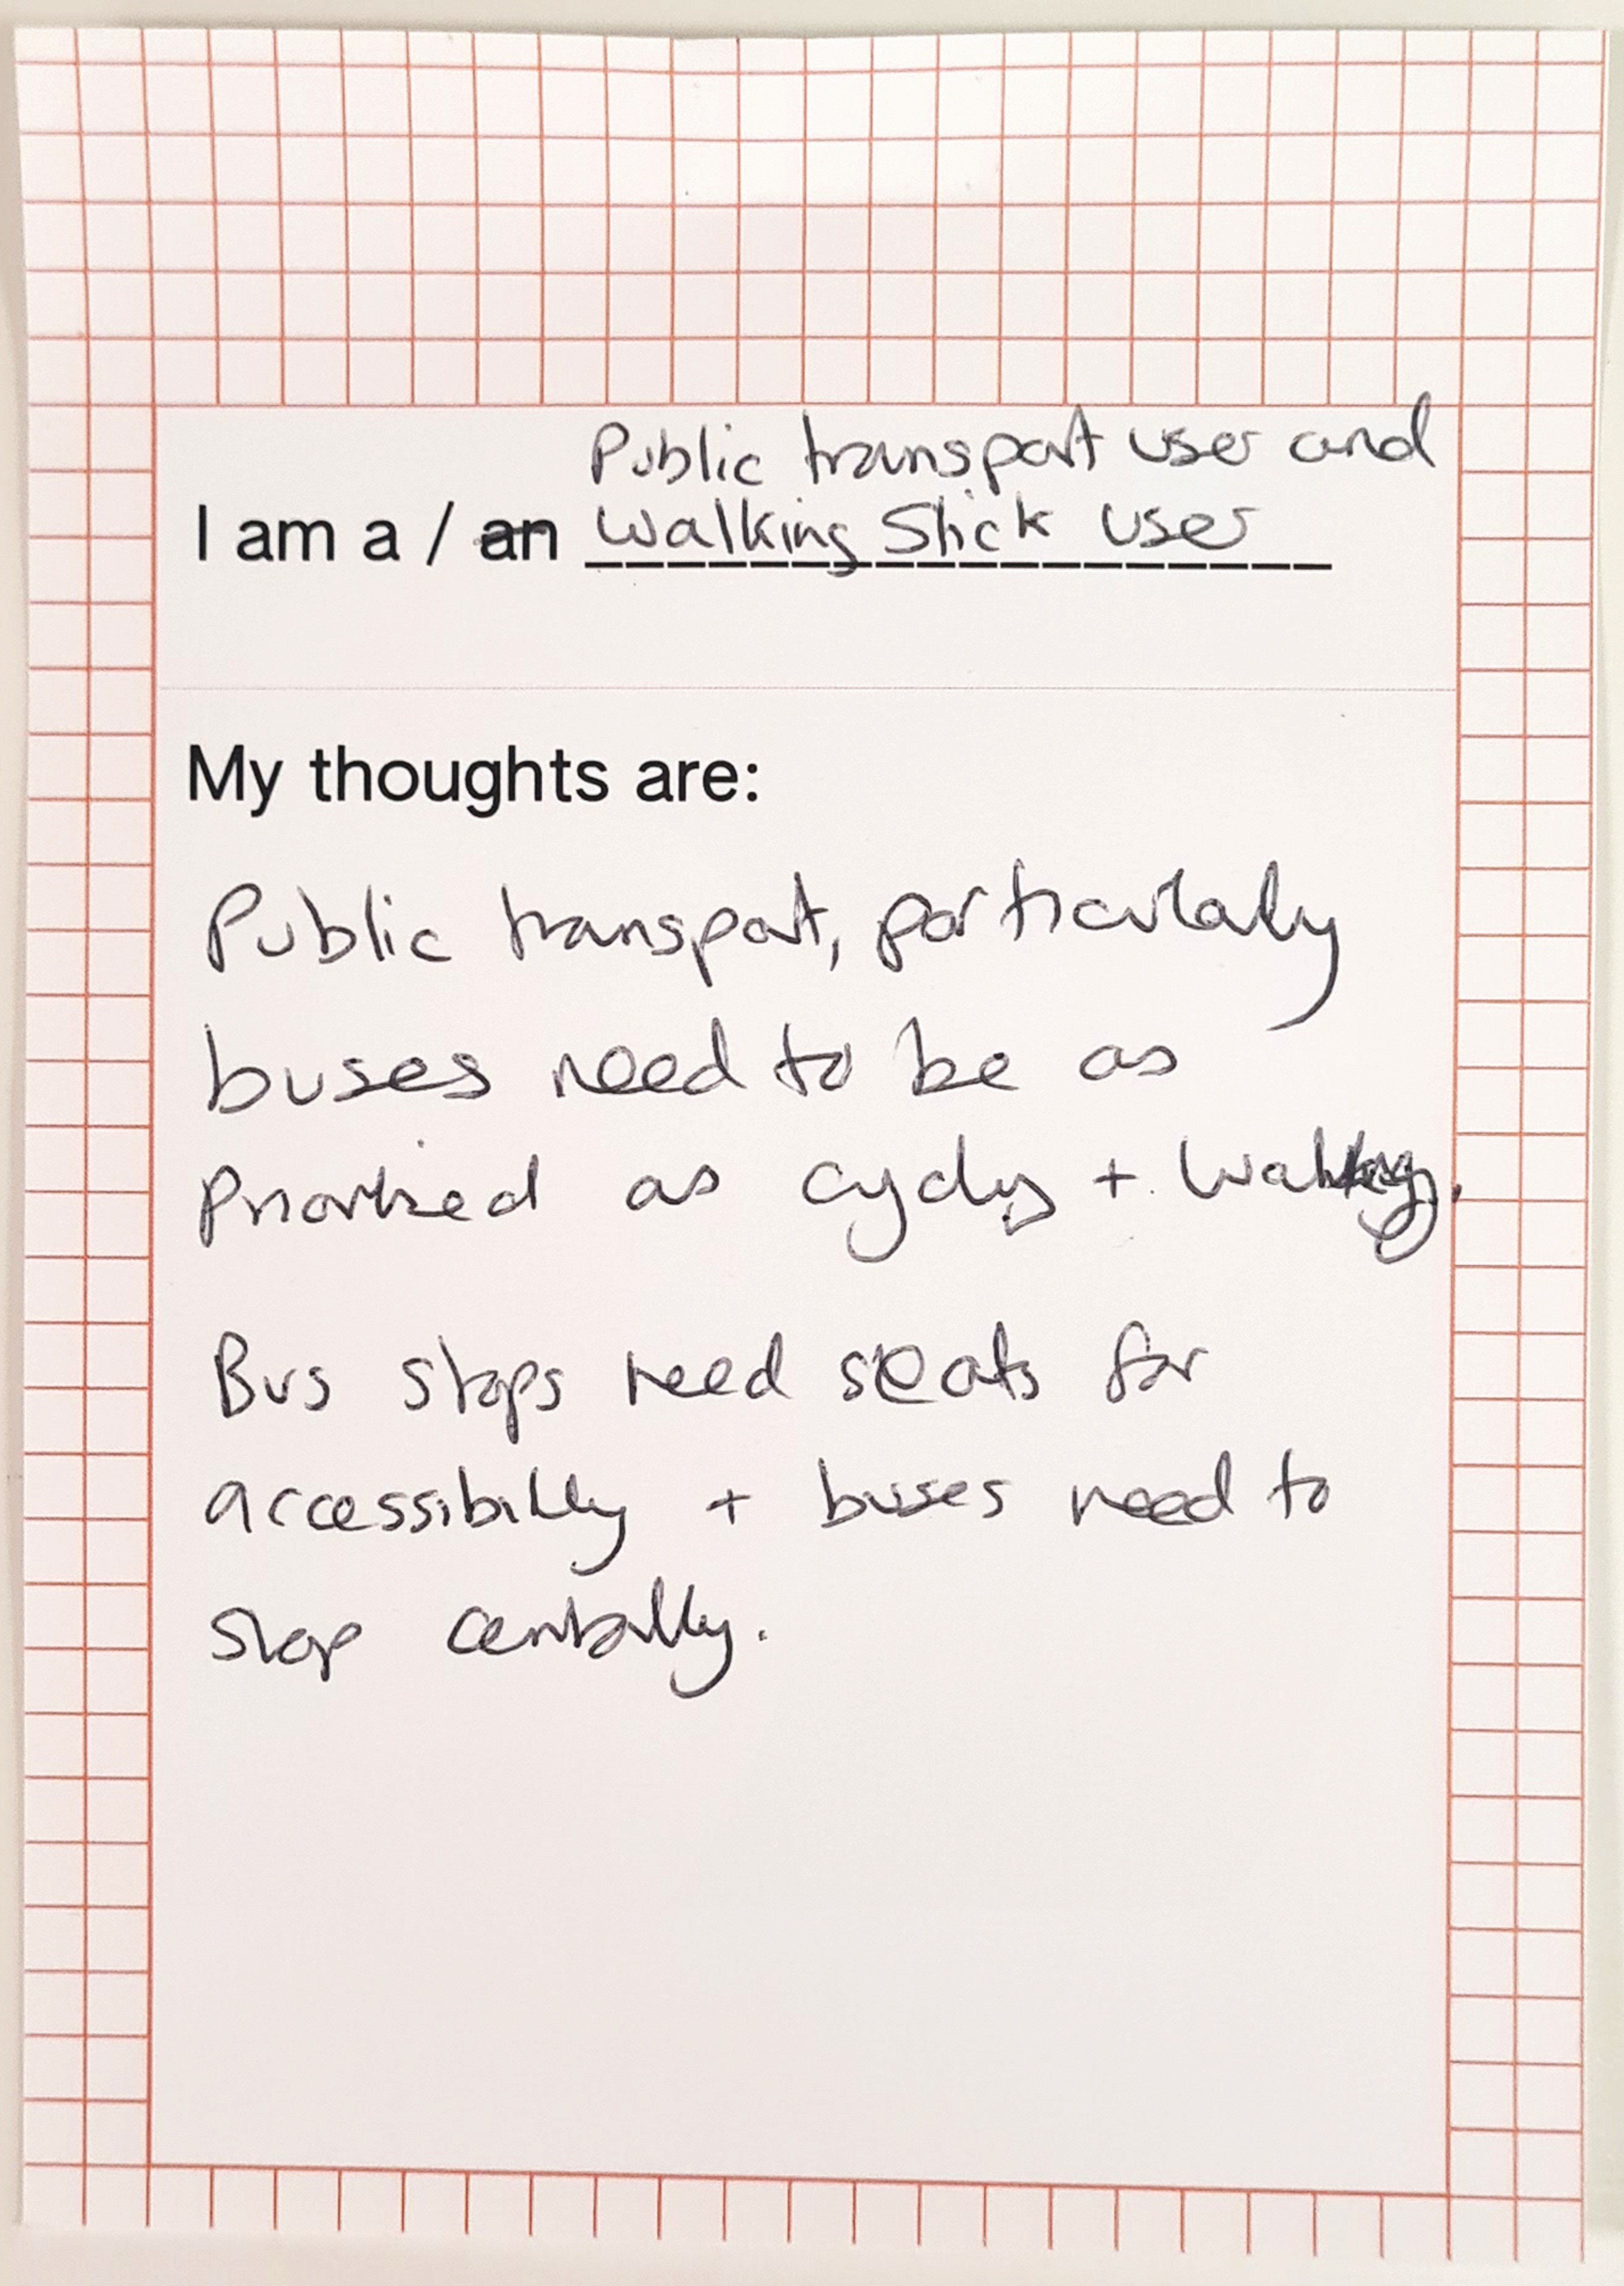 Public transport user and
I am a / an Walking Stick user
My thoughts are:
Public transport, particularly
buses need to be as
prioritised as cycling + walking.
Bus stops need seats for
accessibility + buses need to
stop centrally.